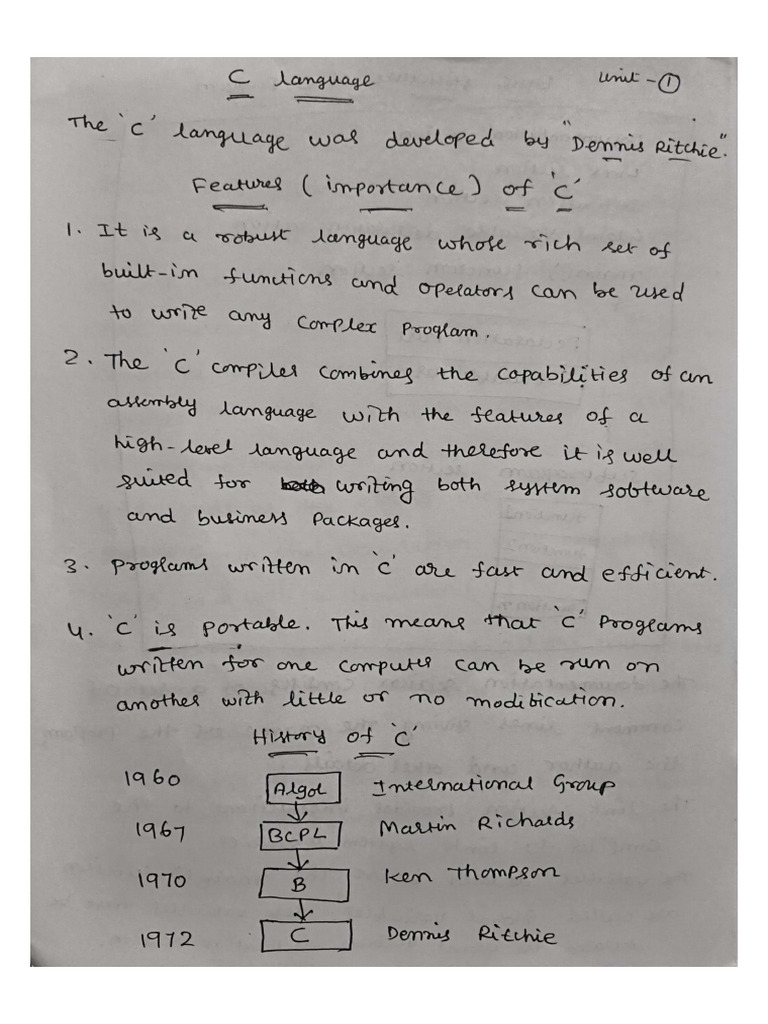 C language
Unit - ①
The 'C' language was developed by "Dennis Ritchie".
Features (importance) of 'C'
1. It is a robust language whose rich set of
built-in functions and operators can be used
to write any complex program.
2. The 'C' compiler combines the capabilities of an
assembly language with the features of a
high-level language and therefore it is well
suited for writing both system sobtware
and business packages.
3. Programs written in 'C' are fast and efficient.
4. 'C' is portable. This means that 'C' Programs
written for one computer can be run on
another with little or no modibication.
History of 'C'
1960 Algol International Group
1967 BCPL Martin Richards
1970 B Ken Thompson
1972 C Dennis Ritchie